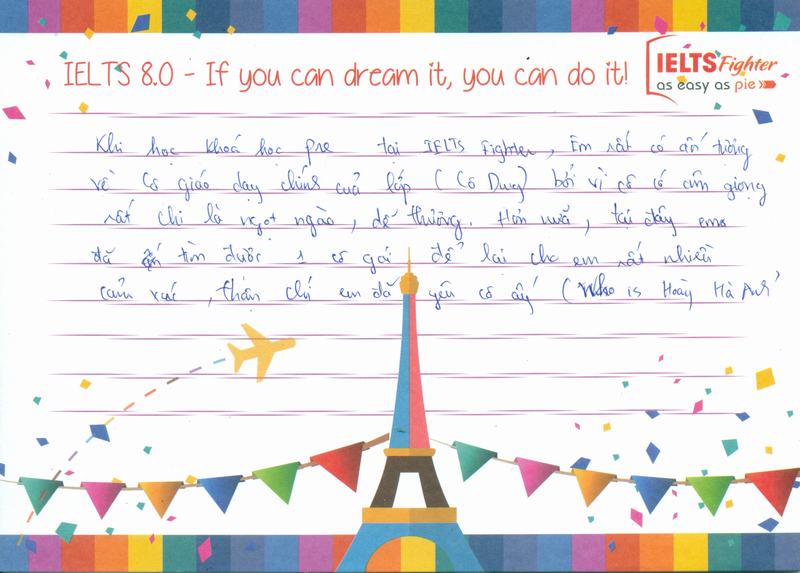 IELTS 8.0 - If you can dream it, you can do it!
IELTS Fighter
as easy as pie
Khi học khoá học pre tại IELTS Fighter, Em rất có ấn tượng
về cô giáo dạy chính của lớp (Cô Dung) bởi vì cô có giọng
rất chi là ngọt ngào, dễ thương. Hơn nữa, tại đây em
đã tìm được 1 cô gái để lại cho em rất nhiều
cảm xúc, thậm chí em đã yêu cô ấy (Who is Hoàng Hà Anh